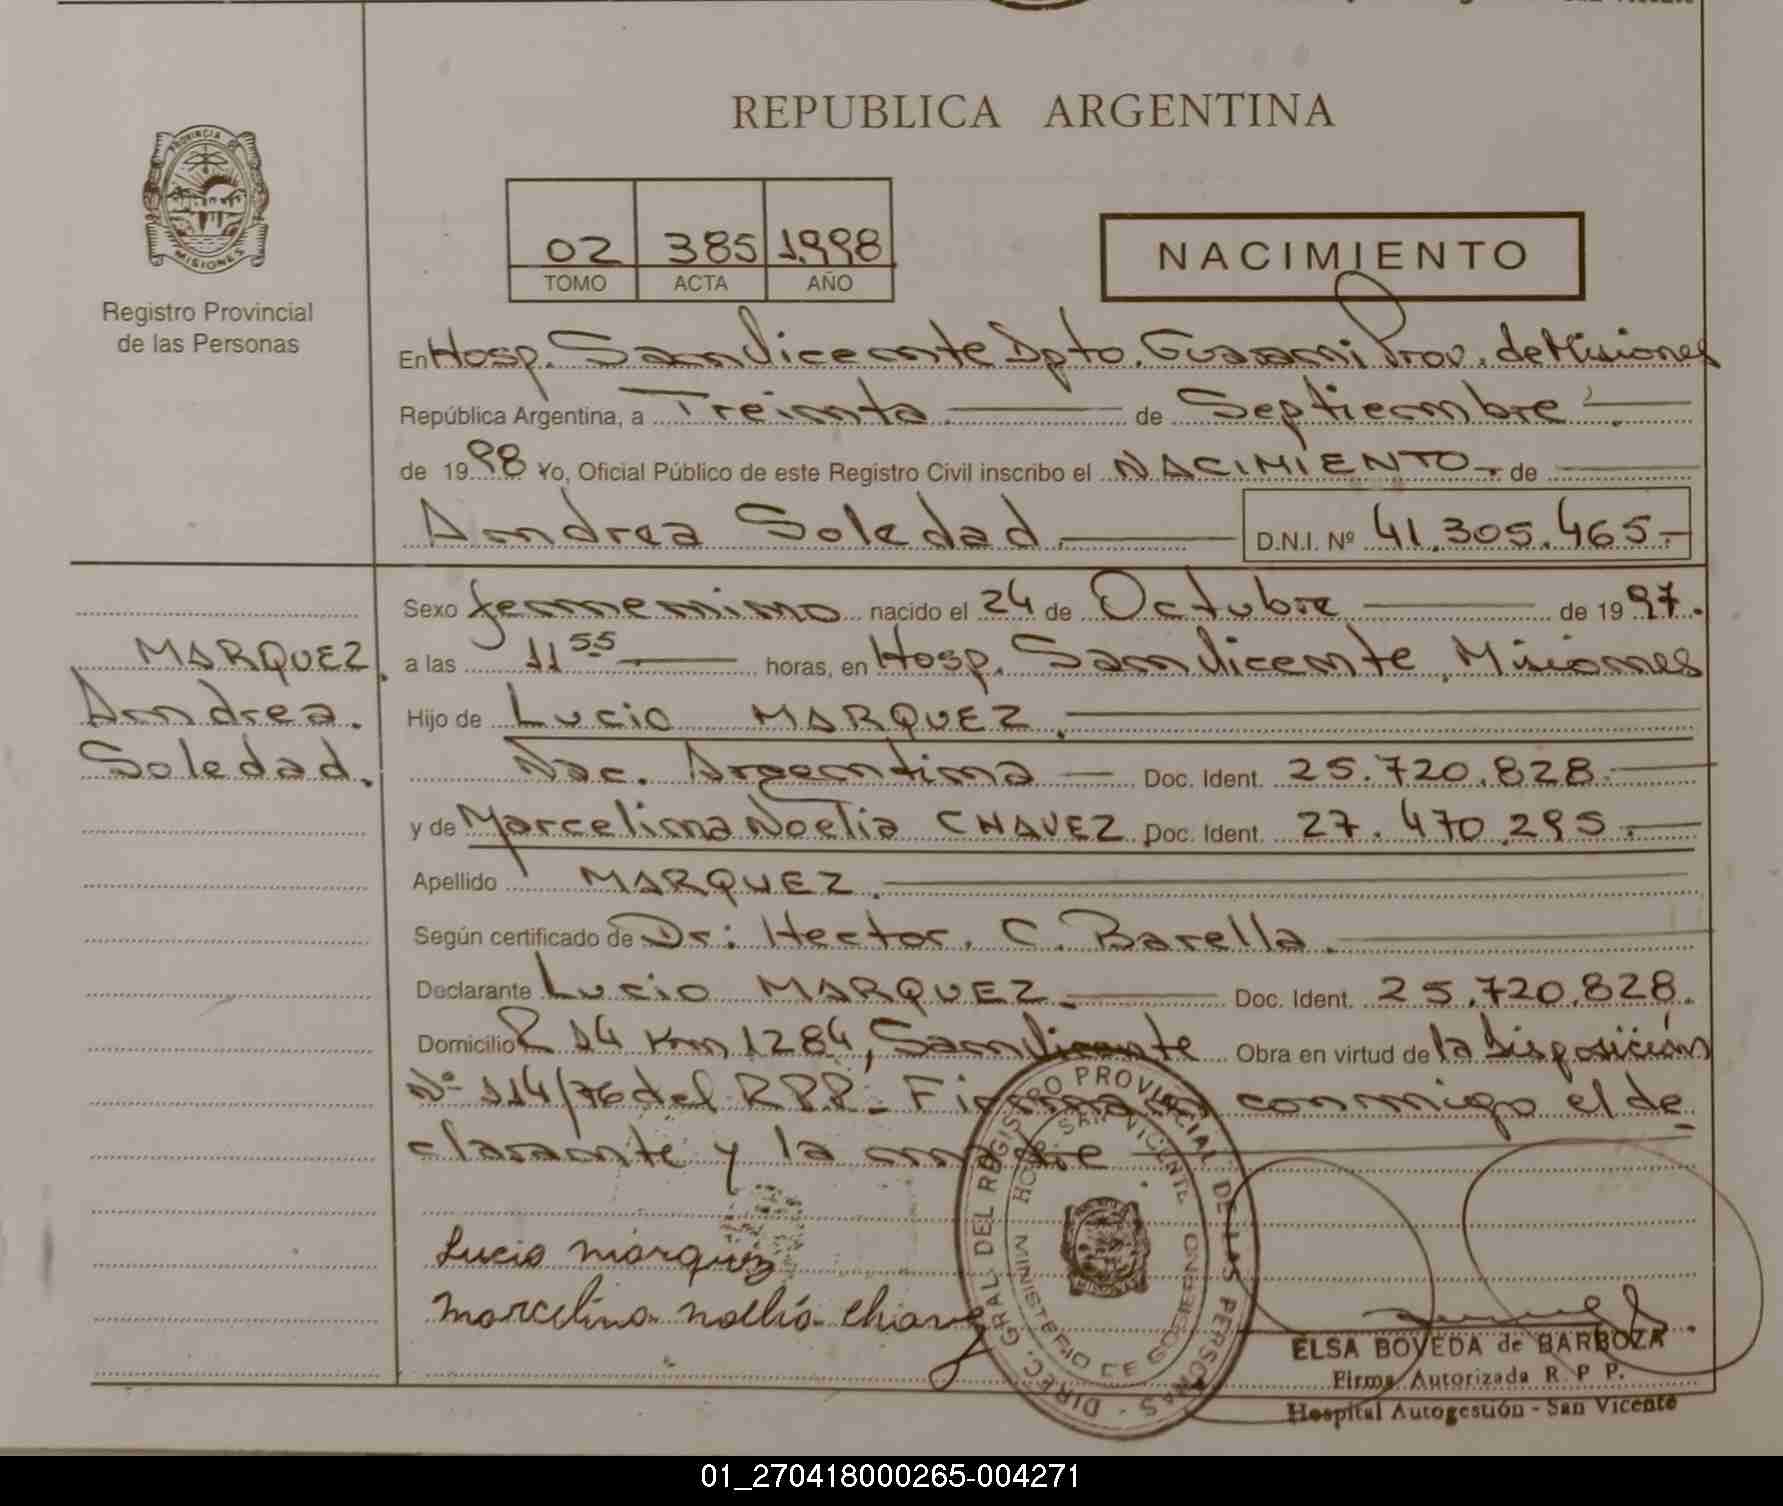 REPUBLICA ARGENTINA
PROVINCIA DE
MISIONES
Registro Provincial
de las Personas
02 385 1.998
TOMO ACTA AÑO
NACIMIENTO
En Hosp. San Vicente Dpto. Guarani Prov. de Misiones
República Argentina, a Treinta de Septiembre.
de 1998 Yo, Oficial Público de este Registro Civil inscribo el NACIMIENTO. de
Andrea Soledad. D.N.I. Nº 41.305.465.-
Sexo femenino nacido el 24 de Octubre de 1997.
a las 11 55 horas, en Hosp. San Vicente, Misiones
Hijo de Lucio MARQUEZ.
Nac. Argentina Doc. Ident. 25.720.828.
y de Marcelina Noelia CHAVEZ Doc. Ident. 27.470.295.
Apellido MARQUEZ.
Según certificado de Dr: Hector. C. Barella.
Declarante Lucio MARQUEZ. Doc. Ident. 25.720.828.
Domicilio R 14 Km 1284, San Vicente Obra en virtud de la Disposición
Nº 114/76 del RPP.- Firman conmigo el de
clarante y la madre
MARQUEZ,
Andrea.
Soledad.
Lucio marquez
marcelina noelia chavez
DIREC. GRAL. DEL REGISTRO PROVINCIAL DE LAS PERSONAS -
HOSP. SAN VICENTE
MINISTERIO DE GOBIERNO
ELSA BOVEDA de BARBOZA
Firma Autorizada R. P. P.
Hospital Autogestión - San Vicente
01_270418000265-004271